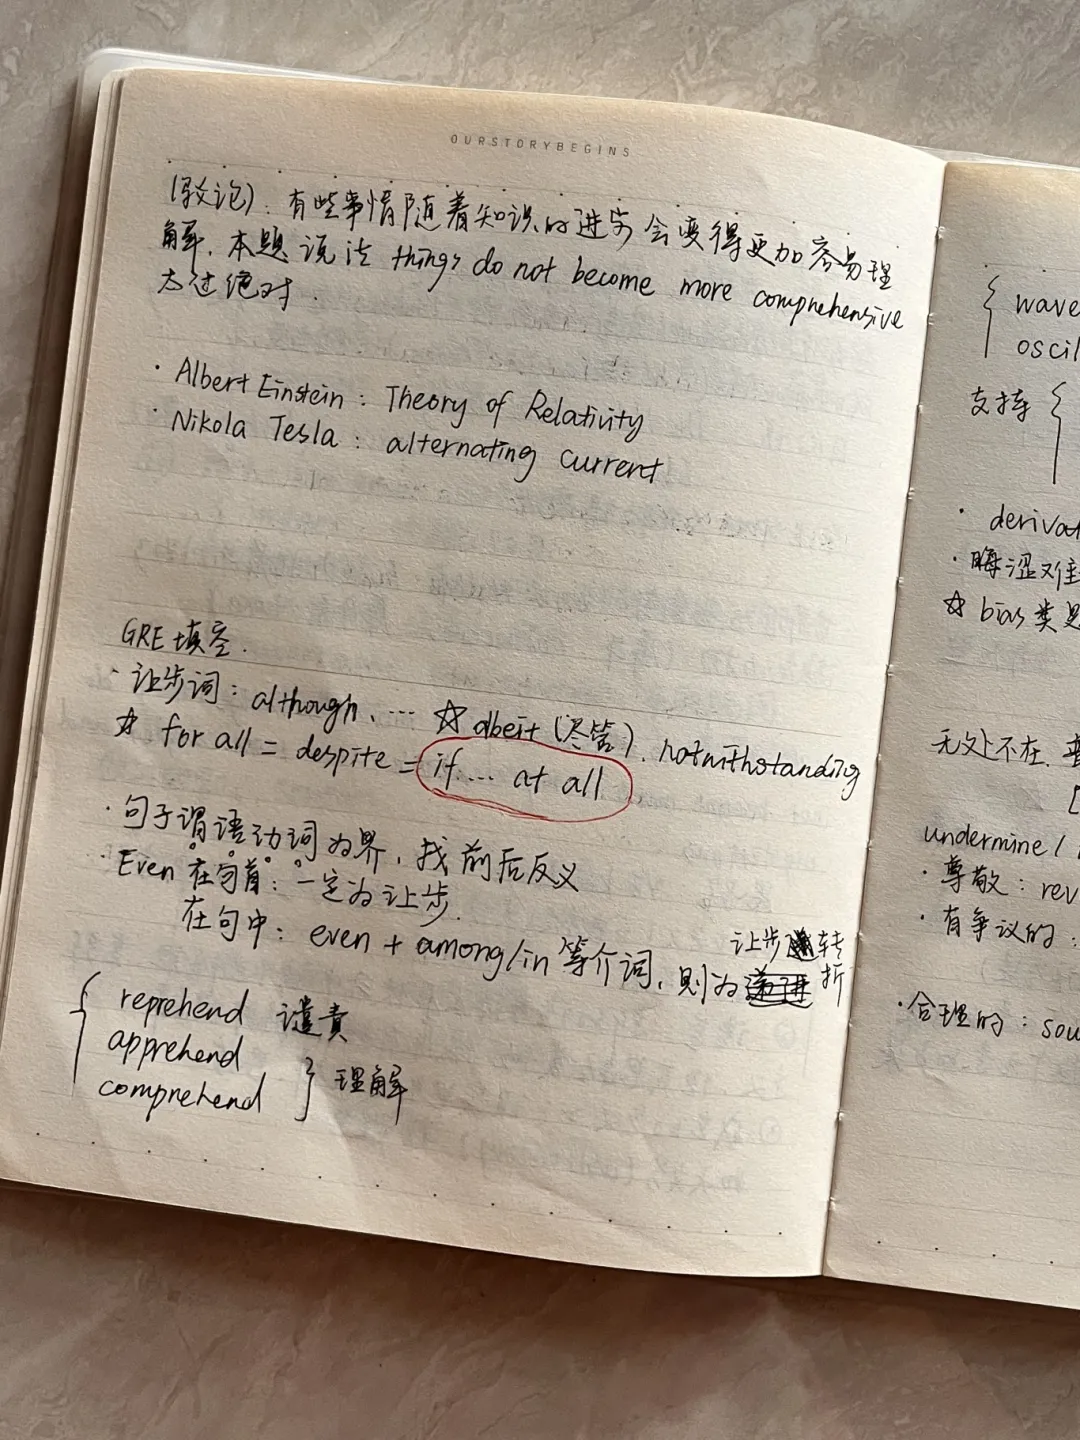 OURSTORYBEGINS
(驳论): 有些事情随着知识的进步会变得更加容易理
解. 本题说法 things do not become more comprehensive
太过绝对.
· Albert Einstein : Theory of Relativity
· Nikola Tesla : alternating current
GRE 填空.
· 让步词: although, … ☆ albeit (尽管), notwithstanding
☆ for all = despite = if … at all
· 句子谓语动词为界, 找前后反义
Even 在句首: 一定为让步.
在句中: even + among/in 等介词, 则为让步转折
{ reprehend 谴责
apprehend
comprehend } 理解
{ wave
oscil
支持 {
· deriva
· 晦涩难
☆ bias 类
无处不在.
[
undermine /
· 尊敬: rev
· 有争议的:
· 合理的: sou